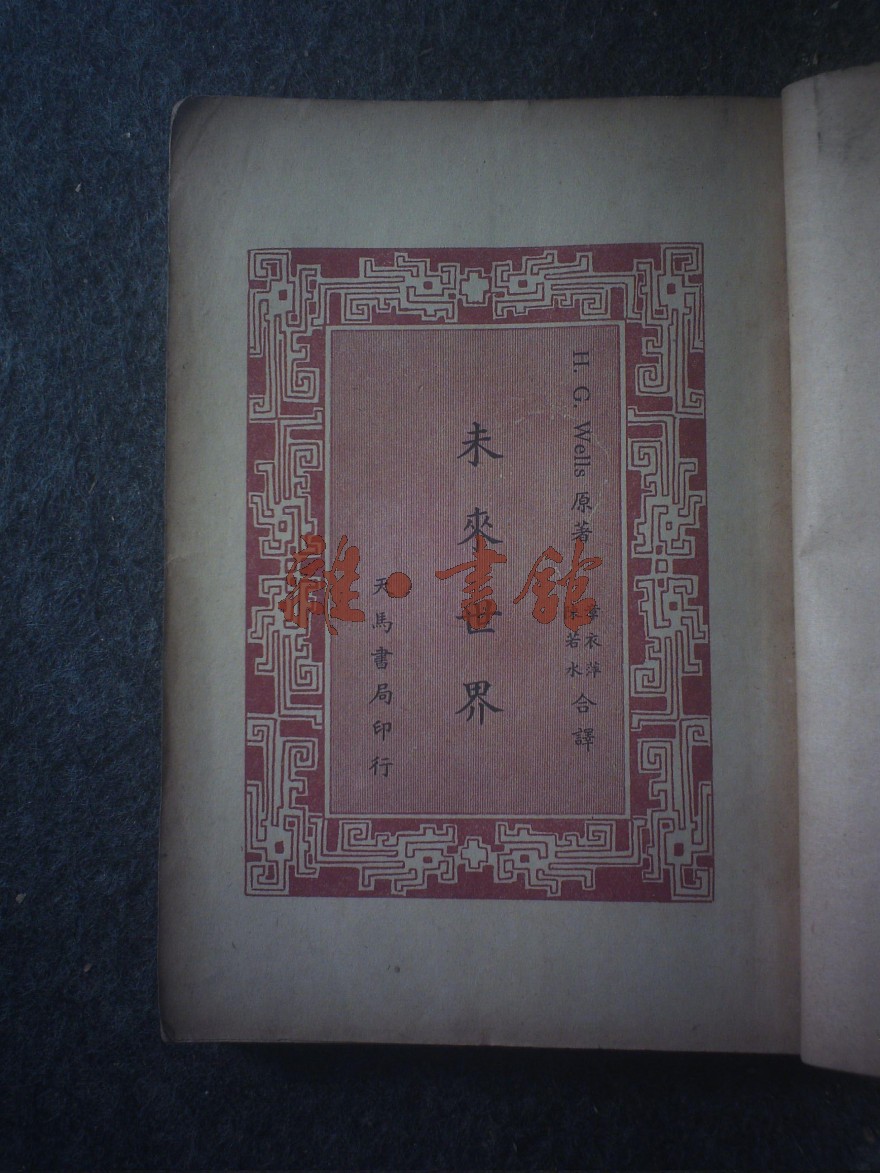 H. G. Wells 原著
章衣萍
若水
合譯
未來世界
天馬書局印行
雜·書館